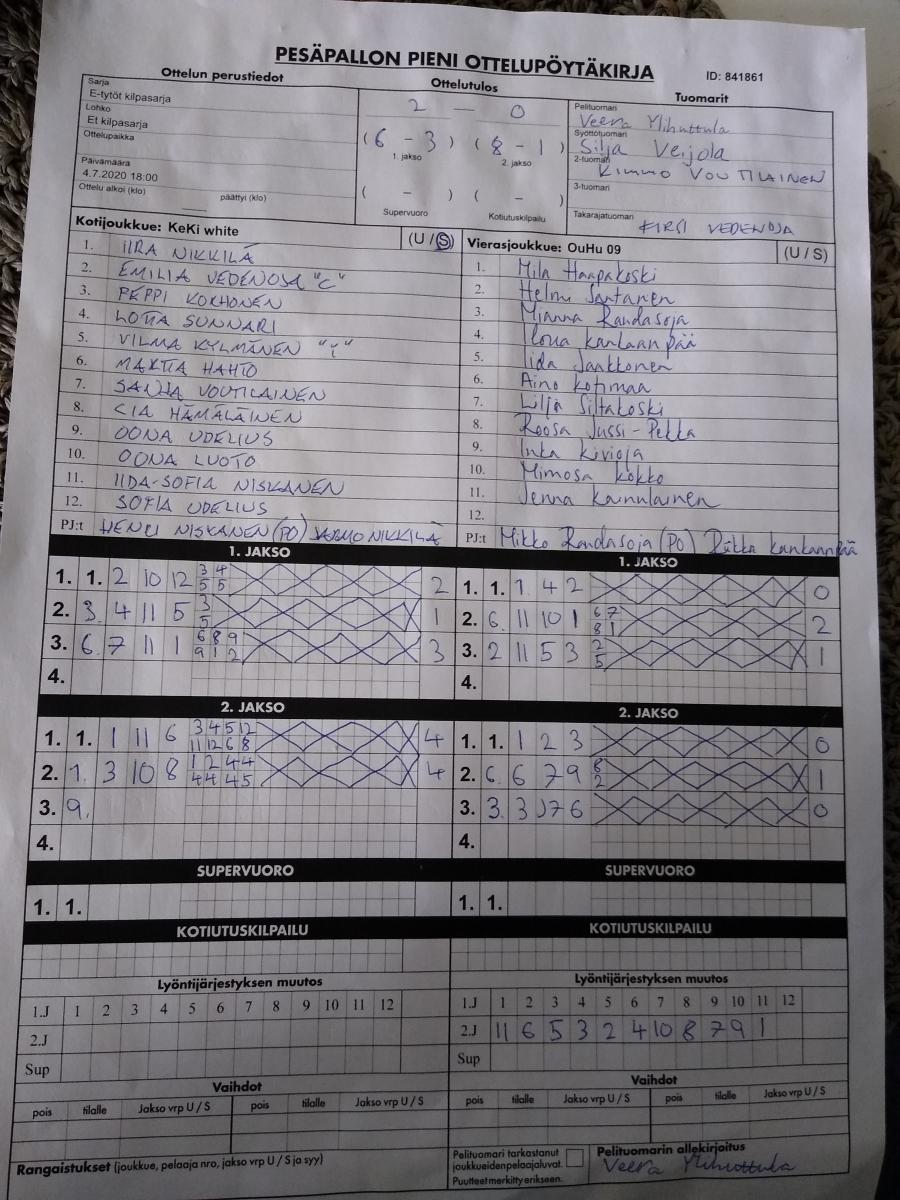 PESÄPALLON PIENI OTTELUPÖYTÄKIRJA
ID: 841861
Ottelun perustiedot
Sarja
E-tytöt kilpasarja
Lohko
Et kilpasarja
Ottelupaikka
Päivämäärä
4.7.2020 18:00
Ottelu alkoi (klo) päättyi (klo)
Ottelutulos
2 — 0
(6 - 3) (8 - 1)
1. jakso 2. jakso
( - ) ( - )
Supervuoro Kotiutuskilpailu
Tuomarit
Pelituomari
Veera Ylihuttula
Syöttötuomari
Silja Veijola
2-tuomari
KIMMO VOUTILAINEN
3-tuomari
Takarajatuomari
KIRSI VEDENOJA
Kotijoukkue: KeKi white (U / S)
1. IIRA NIKKILÄ
2. EMILIA VEDENOJA "C"
3. PEPPI KOKHONEN
4. LOTTA SUNNARI
5. VILMA KYLMÄNEN
6. MARTTA HAHTO
7. SANJA VOUTILAINEN
8. CIA HÄMÄLÄINEN
9. OONA UDELIUS
10. OONA LUOTO
11. IIDA-SOFIA NISKANEN
12. SOFIA UDELIUS
PJ:t HENRI NISKANEN (PO) JARMO NIKKILÄ
Vierasjoukkue: OuHu 09 (U / S)
1. Mila Haapakoski
2. Helmi Santanen
3. Minna Randasoja
4. Ilona Kankaanpää
5. Iida Jaakkonen
6. Aino Kotimaa
7. Lilja Siltakoski
8. Roosa Jussi-Pekka
9. Inka Kivioja
10. Mimosa Kokko
11. Jenna Kainulainen
12.
PJ:t Mikko Randasoja (PO) Riikka Kankaanpää
1. JAKSO
1. 1. 2 10 12 3 4 2
5 5
2. 3. 4 11 5 3 1
5
3. 6. 7 11 1 6 8 9 3
9 1 2
4.
1. JAKSO
1. 1. 1 4 2 0
2. 6. 11 10 1 6 7 2
8 1
3. 2 11 5 3 2 1
5
4.
2. JAKSO
1. 1. 1 11 6 3 4 5 12 4
11 12 6 8
2. 1. 3 10 8 1 2 4 4 4
4 4 4 5
3. 9.
4.
2. JAKSO
1. 1. 1 2 3 0
2. 6. 6 7 9 8 1
2
3. 3. 3 7 6 0
4.
SUPERVUORO
1. 1.
SUPERVUORO
1. 1.
KOTIUTUSKILPAILU
KOTIUTUSKILPAILU
Lyöntijärjestyksen muutos
1.J 1 2 3 4 5 6 7 8 9 10 11 12
2.J
Sup
Lyöntijärjestyksen muutos
1.J 1 2 3 4 5 6 7 8 9 10 11 12
2.J 11 6 5 3 2 4 10 8 7 9 1
Sup
Vaihdot
pois tilalle Jakso vrp U / S pois tilalle Jakso vrp U / S
Vaihdot
pois tilalle Jakso vrp U / S pois tilalle Jakso vrp U / S
Rangaistukset (joukkue, pelaaja nro, jakso vrp U / S ja syy)
Pelituomari tarkastanut
joukkueidenpelaajaluvat.
Puutteet merkitty erikseen.
Pelituomarin allekirjoitus
Veera Ylihuttula